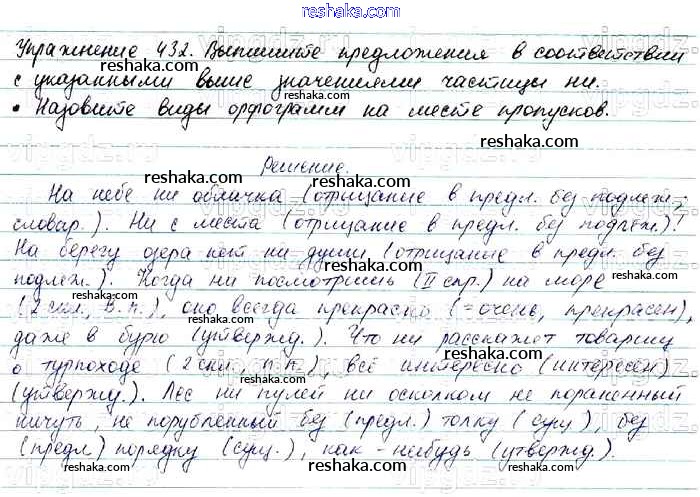 reshaka.com
Упражнение 432. Выпишите предложения в соответствии
с указанными выше значениями частицы ни.
• Назовите виды орфограмм на месте пропусков.
reshaka.com
reshaka.com
Решение.
На небе ни облачка (отрицание в предл. без подлеж.,
словар.). Ни с места (отрицание в предл. без подлеж.)!
На берегу озера нет ни души (отрицание в предл. без
подлеж.). Когда ни посмотришь (II спр.) на море
(2 скл., В.п.), оно всегда прекрасно (=очень, прекрасен),
даже в бурю (утвержд.). Что ни расскажет товарищ
о турпоходе (2 скл., П.п.), всё интересно (интересен)
(утвержд.). Лес ни пулей ни осколком не пораненный
ничуть, не порубленный без (предл.) толку (сущ.), без
(предл.) порядку (сущ.), как-нибудь (утвержд.).
reshaka.com